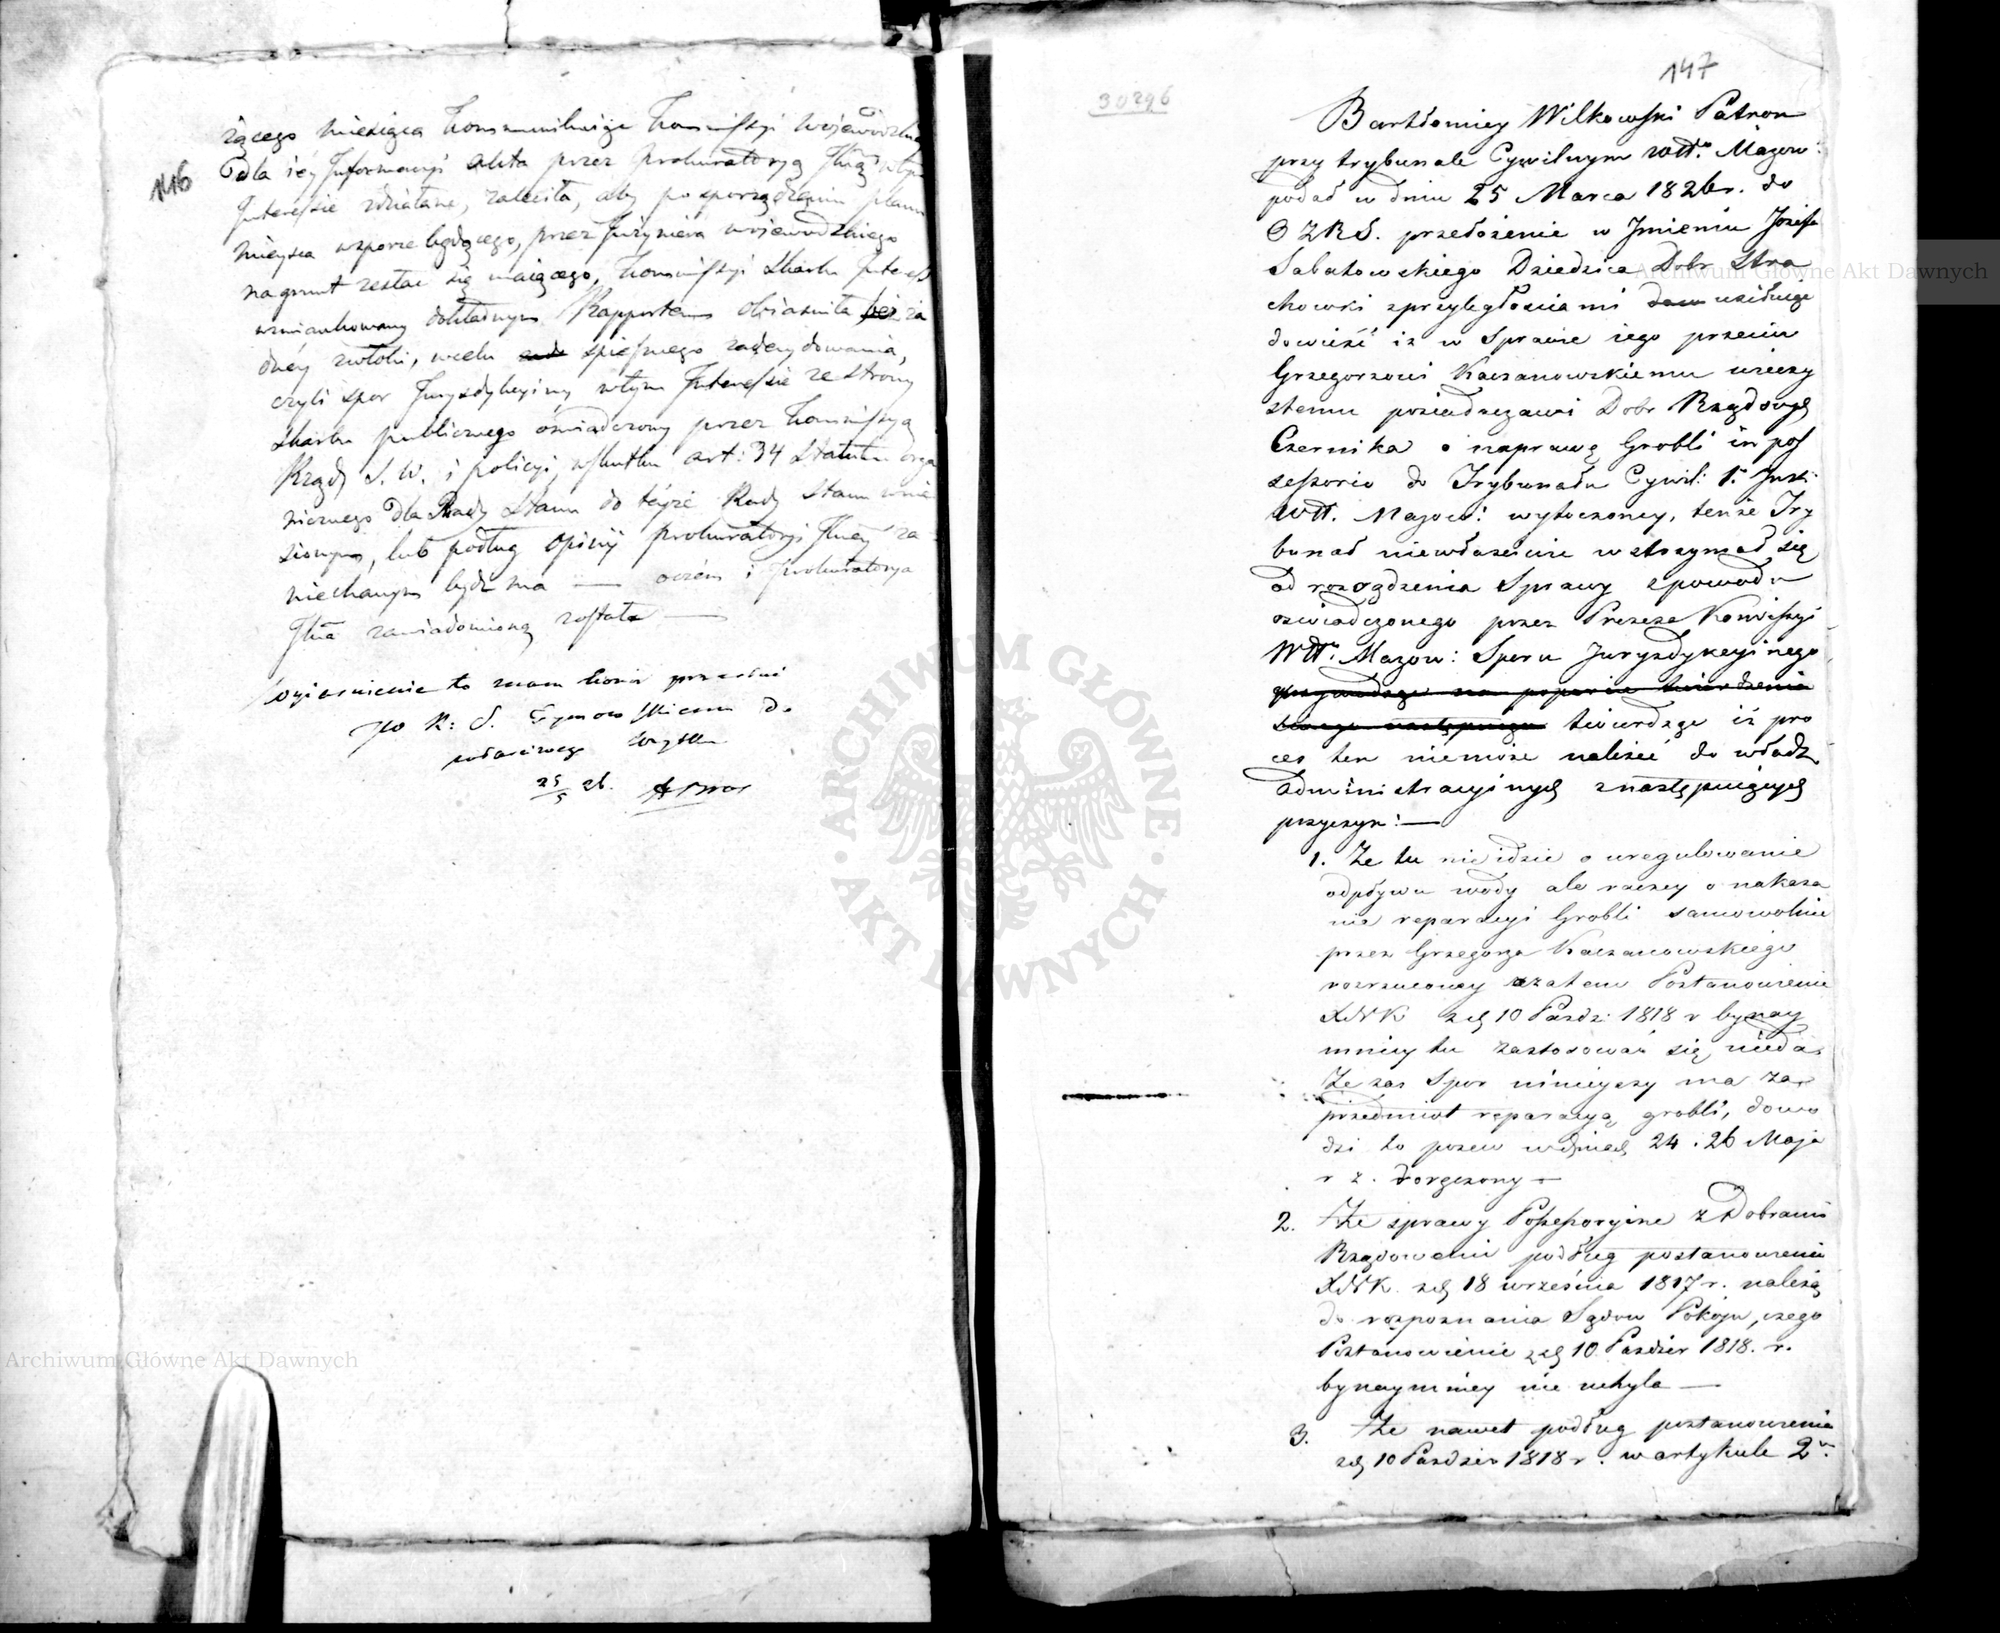 146
żącego miesiąca kommunikując Kommissyi Wojewódzkiey
dla iéy Informacyi akta przez Prokuratoryą Jlną wtym
Interessie zdziałane, zaleciła, aby po sporządzeniu planu
mieysca wsporze będącego, przez Inżyniera wojewodzkiego
na grunt zesłać się maiącego, Kommissyi Skarbu Interess
wzmiankowany dokładnym Rapportem obiaśniła bez ża
dnéy zwłoki, wcelu spiesznego zadecydowania,
czyli spor Jurysdykcyiny wtym Interessie ze strony
Skarbu publicznego oświadczony przez Kommissyą
Rządz S. W. i policyi, wskutku art: 34 Statutu orga
nicznego dla Rady Stanu do téyże Rady Stanu wnie
sionym, lub podług Opinij Prokuratoryi Jlney za
niechanym bydź ma — oczém i Prokuratorya
Jlna zawiadomioną została —
Wyiaśnienie to mam honor przesłać
JW R: S. Tymowskiemu do
właściwego użytku
25/5 26.
147
30296
Bartłomiey Wilkowski Patron
przy trybunale Cywilnym Wtt. Mazow:
podał w dniu 25 Marca 1826 r. do
O Z R S. przełożenie w Jmieniu Józefa
Sabatowskiego Dziedzica Dobr Stra
chowki zprzyległosciami usiłuiąc
dowieść iż w Sprawie iego przeciw
Grzegorzowi Kaczanowskiemu wieczy
stemu posiadaczowi Dobr Rządowych
Czernika o naprawę Grobli in pos
sessorio do Trybunału Cywil: 1. Jnst:
Wtt. Mazow: wytoczoney, tenże Try
bunał niewłaściwie wstrzymał się
od rozsądzenia Sprawy zpowodu
oświadczonego przez Prezesa Kommissyi
Wtt. Mazow: Sporu Jurysdykcyinego
przywodząc na poparcie twierdzenia
swego następuiące twierdząc iż pro
ces ten niemoże należeć do władz
administracyinych znastępuiących
przyczyn: —
1. Że tu nie idzie o uregulowanie
odpływu wody ale raczey o nakaza
nie reparacyi Grobli samowolnie
przez Grzegorza Kaczanowskiego
rozrzuconey a zatem Postanowienie
XNK z d. 10 Pazdz: 1818 r bynay
mniey tu zastosować się nieda.
Że zaś Spor ninieyszy ma za
przedmiot reparacyą grobli, dowo
dzi to pozew wdniach 24 i 26 Maja
r z. doręczony —
2. Że sprawy Possessoryine z Dobrami
Rządowemi podług postanowienia
XNK. z d. 18 września 1817 r. należą
do rozpoznania Sądow Pokoju, czego
Postanowienie z d. 10 Pazdzier 1818. r.
bynaymniey nie uchyla —
3. Że nawet podług postanowienia
z d. 10 Pazdzier 1818 r. w artykule 2.
ARCHIWUM GŁÓWNE AKT DAWNYCH
Archiwum Główne Akt Dawnych
Archiwum Główne Akt Dawnych